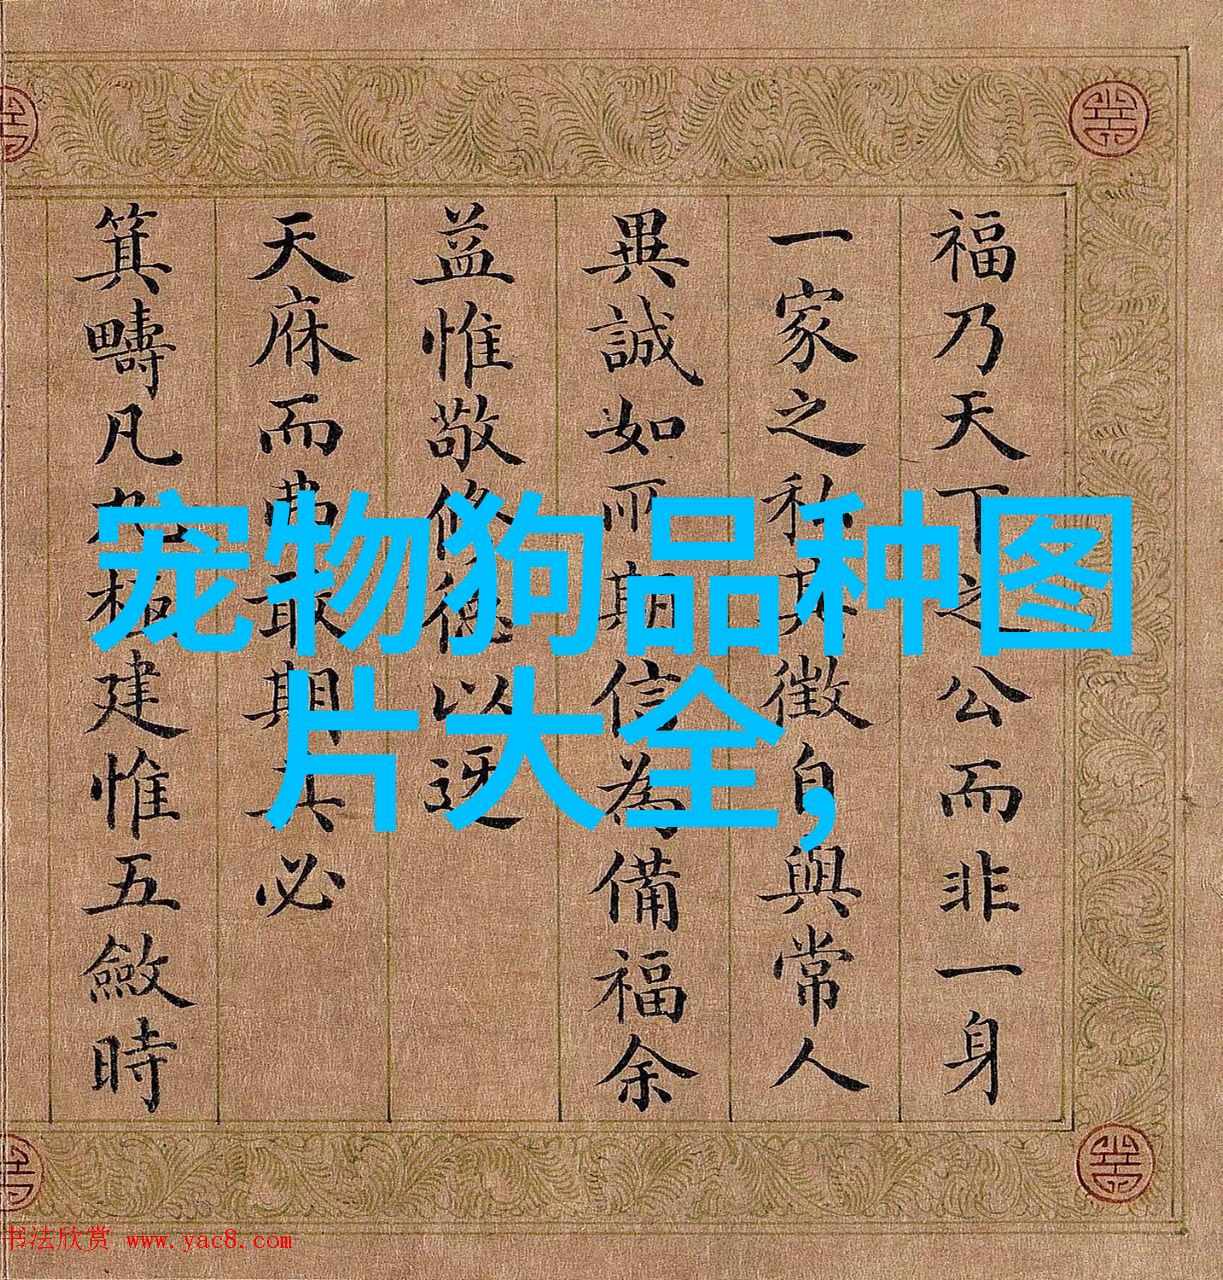 福乃天下之公而非一身
一家之私其徵自與常人
異誠如所期信為備福余
益惟敬修德以迓
天庥而弗期其必
箕疇凡九極建惟五斂時
宠物狗品种图
片大全,
书法欣赏 www.yac8.com